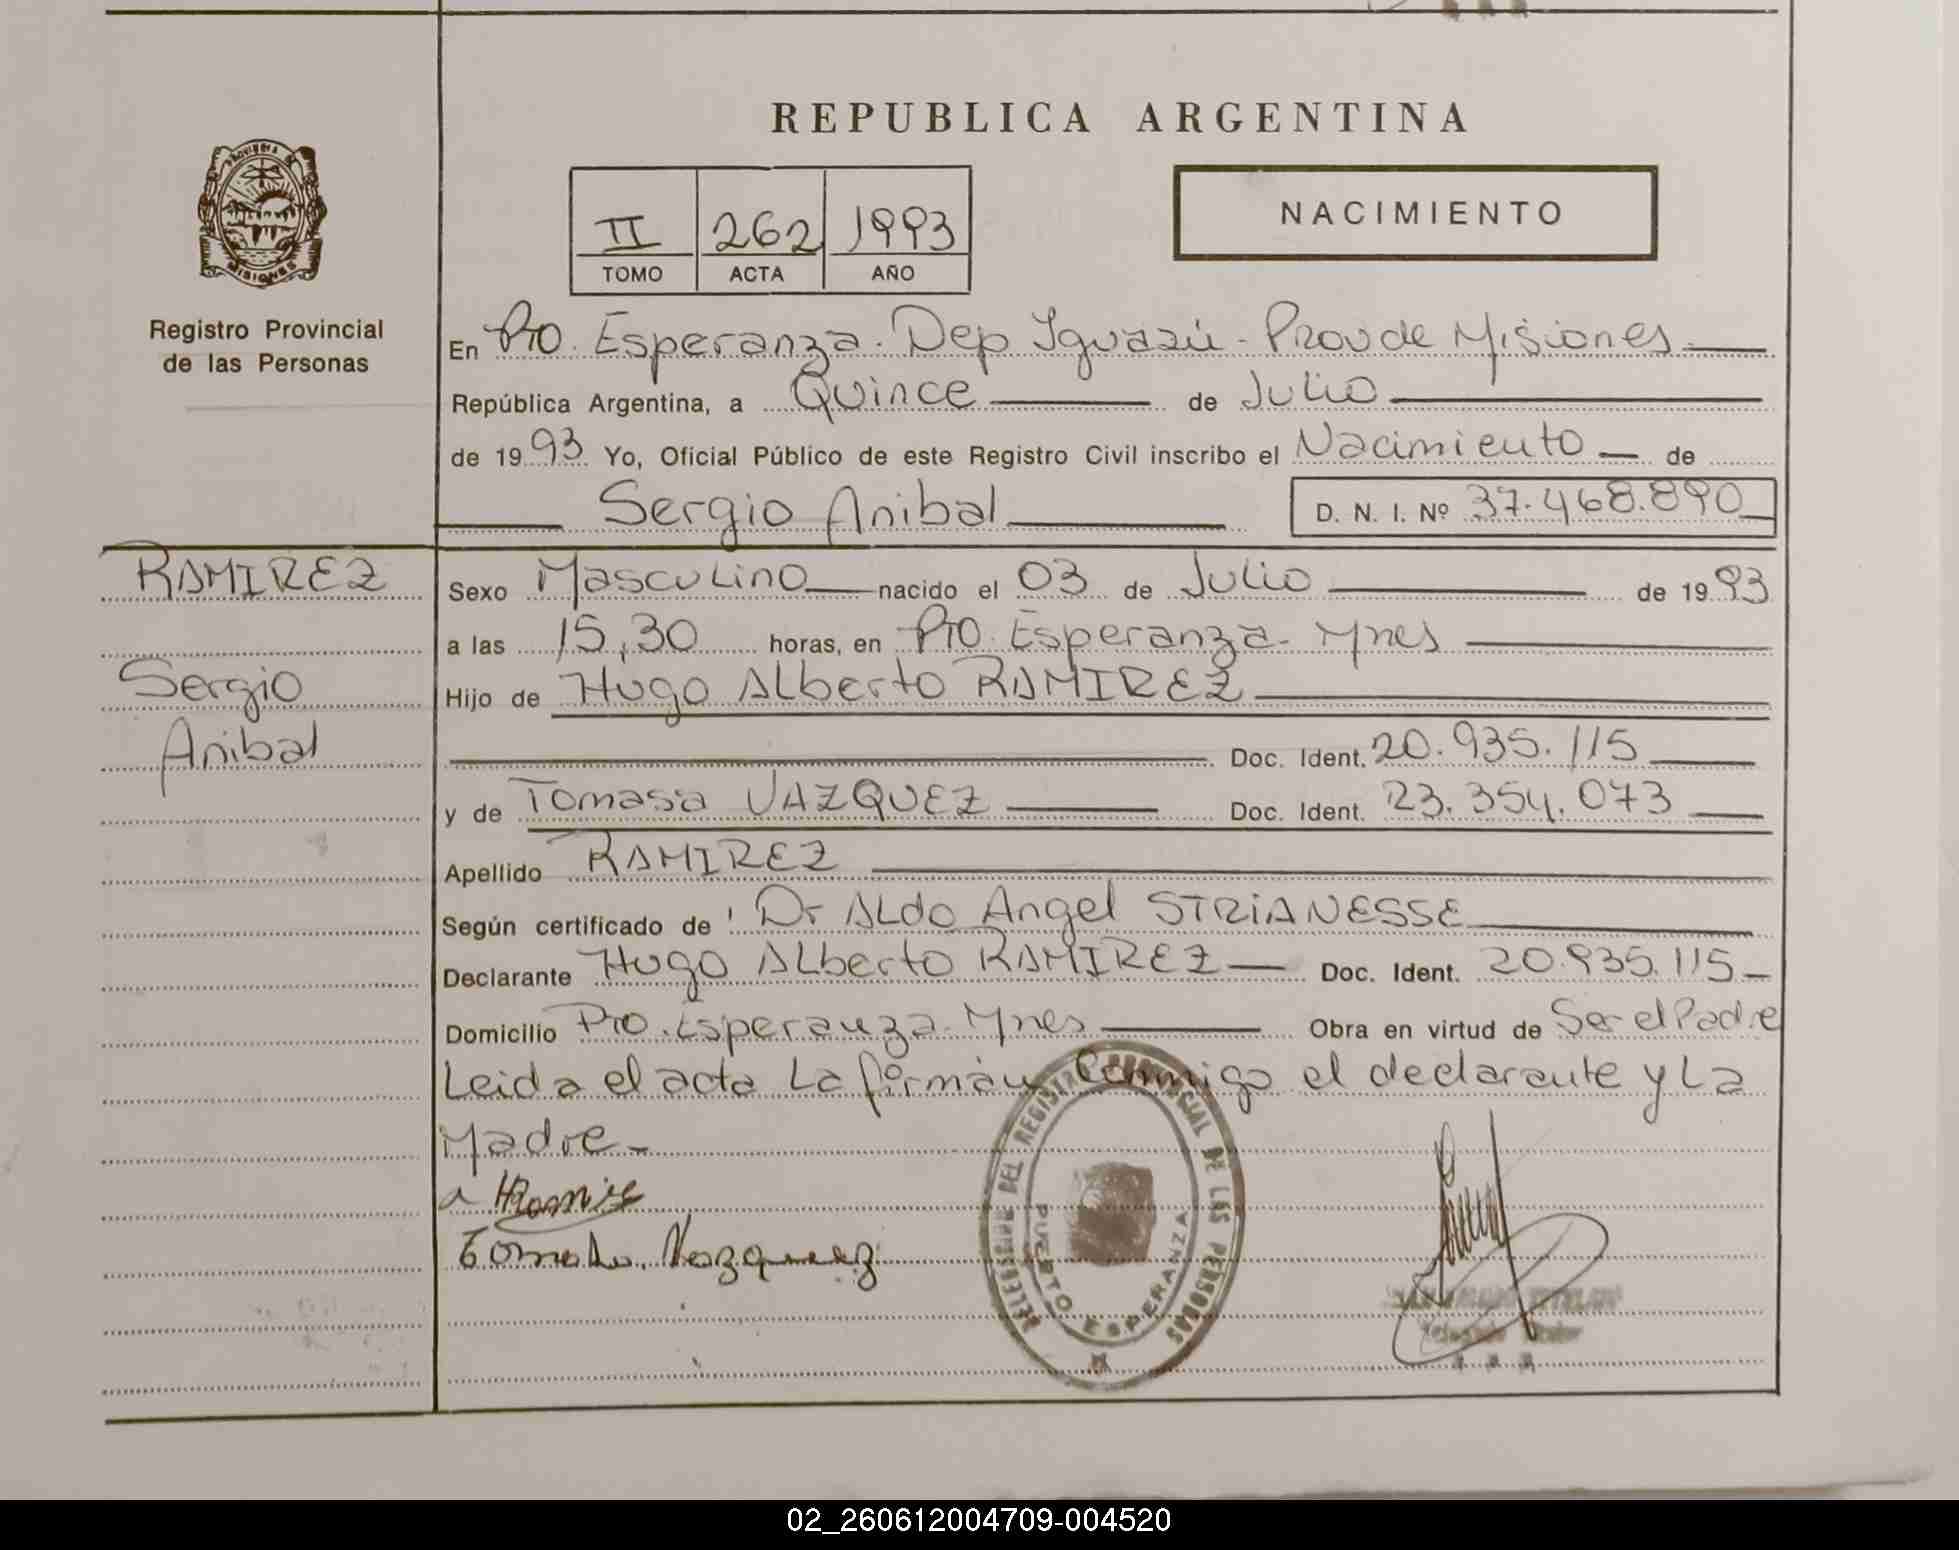 REPUBLICA ARGENTINA
PROVINCIA DE MISIONES
Registro Provincial
de las Personas
II 262 1993
TOMO ACTA AÑO
NACIMIENTO
En Pto. Esperanza. Dep Iguazú - Prov de Misiones.
República Argentina, a Quince de Julio
de 1993 Yo, Oficial Público de este Registro Civil inscribo el Nacimiento de
Sergio Anibal D. N. I. Nº 37.468.890
RAMIREZ
Sergio
Anibal
Sexo Masculino nacido el 03 de Julio de 1993
a las 15,30 horas, en Pto. Esperanza - Mnes
Hijo de Hugo Alberto RAMIREZ
Doc. Ident. 20.935.115
y de Tomasa VAZQUEZ Doc. Ident. 23.354.073
Apellido RAMIREZ
Según certificado de Dr Aldo Angel STRIANESSE
Declarante Hugo Alberto RAMIREZ Doc. Ident. 20.935.115
Domicilio Pto. Esperanza - Mnes Obra en virtud de Ser el Padre
Leida el acta La firman Conmigo el declarante y La
Madre -
Tomasa Vazquez
DELEGACION DEL REGISTRO PROVINCIAL DE LAS PERSONAS
PUERTO ESPERANZA
02_260612004709-004520